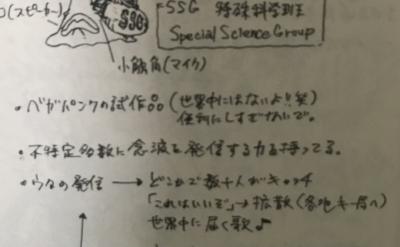 (スピーカー)
SSG
SSG 特殊科学班
Special Science Group
小触角(マイク)
・ベガパンクの試作品 (世界中にはないよ!!笑)
便利にしすぎないで。
・不特定多数に念波を発信する力を持ってる。
・ウタの発信 → どこかで数十人がキャッチ
「これはいいぞ」→ 拡散 (各地キー局へ)
世界中に届く歌♪